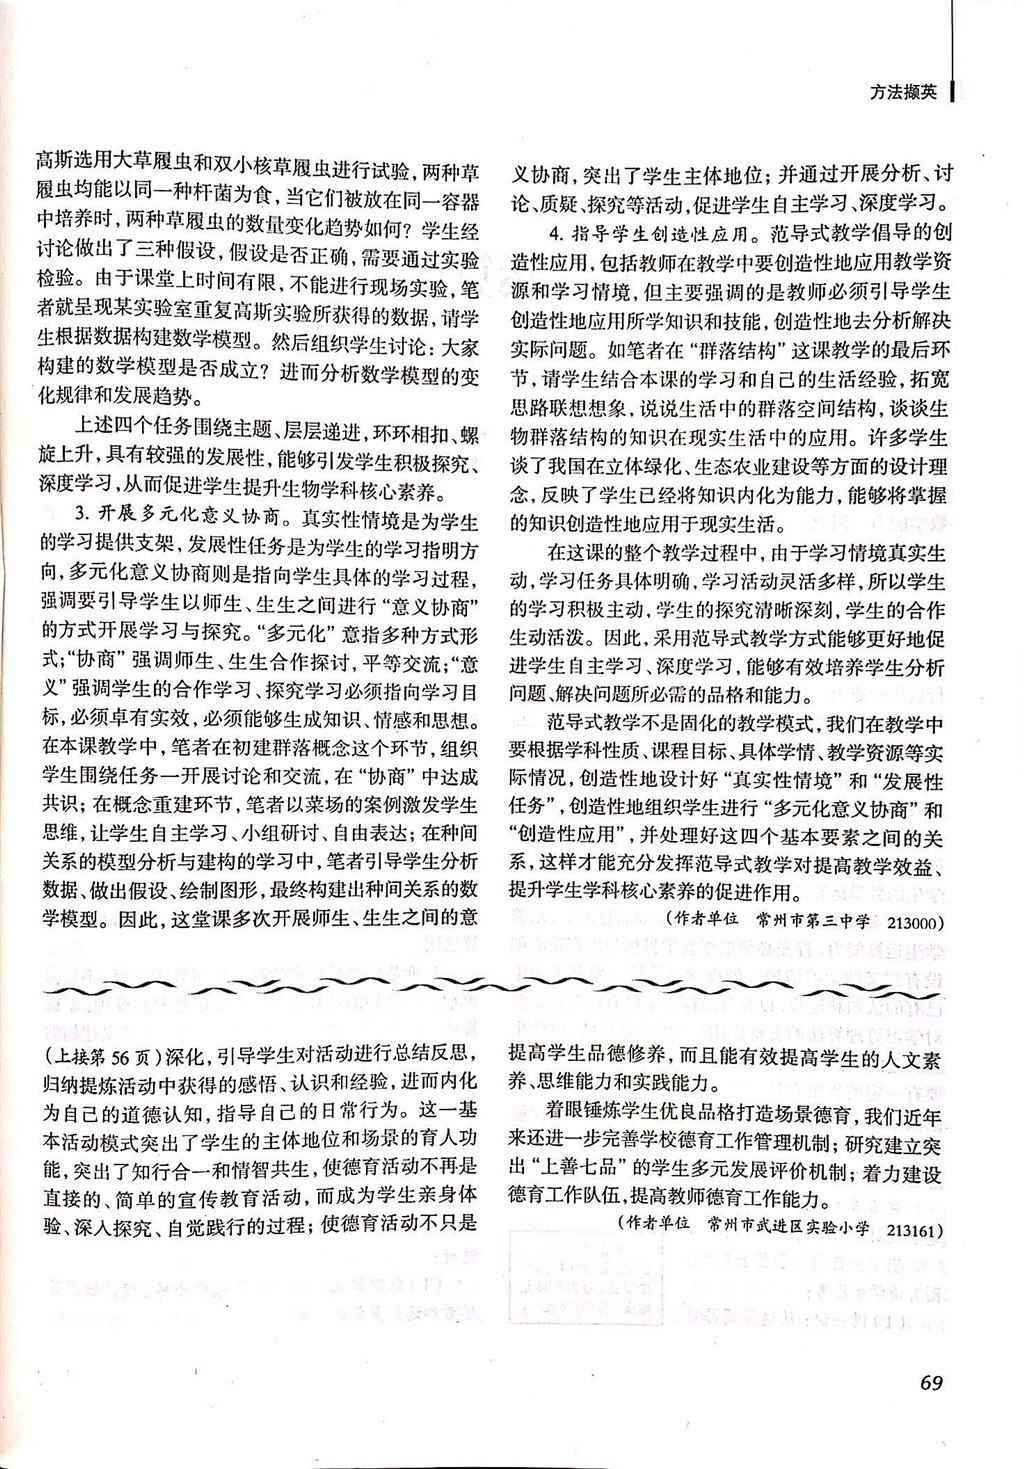 方法撷英
高斯选用大草履虫和双小核草履虫进行试验,两种草
履虫均能以同一种杆菌为食,当它们被放在同一容器
中培养时,两种草履虫的数量变化趋势如何？学生经
讨论做出了三种假设,假设是否正确,需要通过实验
检验。由于课堂上时间有限,不能进行现场实验,笔
者就呈现某实验室重复高斯实验所获得的数据,请学
生根据数据构建数学模型。然后组织学生讨论：大家
构建的数学模型是否成立？进而分析数学模型的变
化规律和发展趋势。
上述四个任务围绕主题、层层递进,环环相扣、螺
旋上升,具有较强的发展性,能够引发学生积极探究、
深度学习,从而促进学生提升生物学科核心素养。
3. 开展多元化意义协商。真实性情境是为学生
的学习提供支架，发展性任务是为学生的学习指明方
向,多元化意义协商则是指向学生具体的学习过程,
强调要引导学生以师生、生生之间进行“意义协商”
的方式开展学习与探究。“多元化”意指多种方式形
式;“协商”强调师生、生生合作探讨,平等交流;“意
义”强调学生的合作学习、探究学习必须指向学习目
标,必须卓有实效,必须能够生成知识、情感和思想。
在本课教学中,笔者在初建群落概念这个环节,组织
学生围绕任务一开展讨论和交流,在“协商”中达成
共识；在概念重建环节,笔者以菜场的案例激发学生
思维,让学生自主学习、小组研讨、自由表达；在种间
关系的模型分析与建构的学习中,笔者引导学生分析
数据、做出假设、绘制图形,最终构建出种间关系的数
学模型。因此,这堂课多次开展师生、生生之间的意
义协商,突出了学生主体地位；并通过开展分析、讨
论、质疑、探究等活动,促进学生自主学习、深度学习。
4. 指导学生创造性应用。范导式教学倡导的创
造性应用,包括教师在教学中要创造性地应用教学资
源和学习情境,但主要强调的是教师必须引导学生
创造性地应用所学知识和技能,创造性地去分析解决
实际问题。如笔者在“群落结构”这课教学的最后环
节,请学生结合本课的学习和自己的生活经验,拓宽
思路联想想象,说说生活中的群落空间结构,谈谈生
物群落结构的知识在现实生活中的应用。许多学生
谈了我国在立体绿化、生态农业建设等方面的设计理
念,反映了学生已经将知识内化为能力,能够将掌握
的知识创造性地应用于现实生活。
在这课的整个教学过程中,由于学习情境真实生
动,学习任务具体明确,学习活动灵活多样,所以学生
的学习积极主动,学生的探究清晰深刻,学生的合作
生动活泼。因此,采用范导式教学方式能够更好地促
进学生自主学习、深度学习,能够有效培养学生分析
问题、解决问题所必需的品格和能力。
范导式教学不是固化的教学模式,我们在教学中
要根据学科性质、课程目标、具体学情、教学资源等实
际情况,创造性地设计好“真实性情境”和“发展性
任务”,创造性地组织学生进行“多元化意义协商”和
“创造性应用”,并处理好这四个基本要素之间的关
系,这样才能充分发挥范导式教学对提高教学效益、
提升学生学科核心素养的促进作用。
(作者单位 常州市第三中学 213000)
(上接第 56 页)深化,引导学生对活动进行总结反思,
归纳提炼活动中获得的感悟、认识和经验,进而内化
为自己的道德认知,指导自己的日常行为。这一基
本活动模式突出了学生的主体地位和场景的育人功
能,突出了知行合一和情智共生,使德育活动不再是
直接的、简单的宣传教育活动,而成为学生亲身体
验、深入探究、自觉践行的过程；使德育活动不只是
提高学生品德修养,而且能有效提高学生的人文素
养、思维能力和实践能力。
着眼锤炼学生优良品格打造场景德育,我们近年
来还进一步完善学校德育工作管理机制；研究建立突
出“上善七品”的学生多元发展评价机制；着力建设
德育工作队伍,提高教师德育工作能力。
(作者单位 常州市武进区实验小学 213161)
69